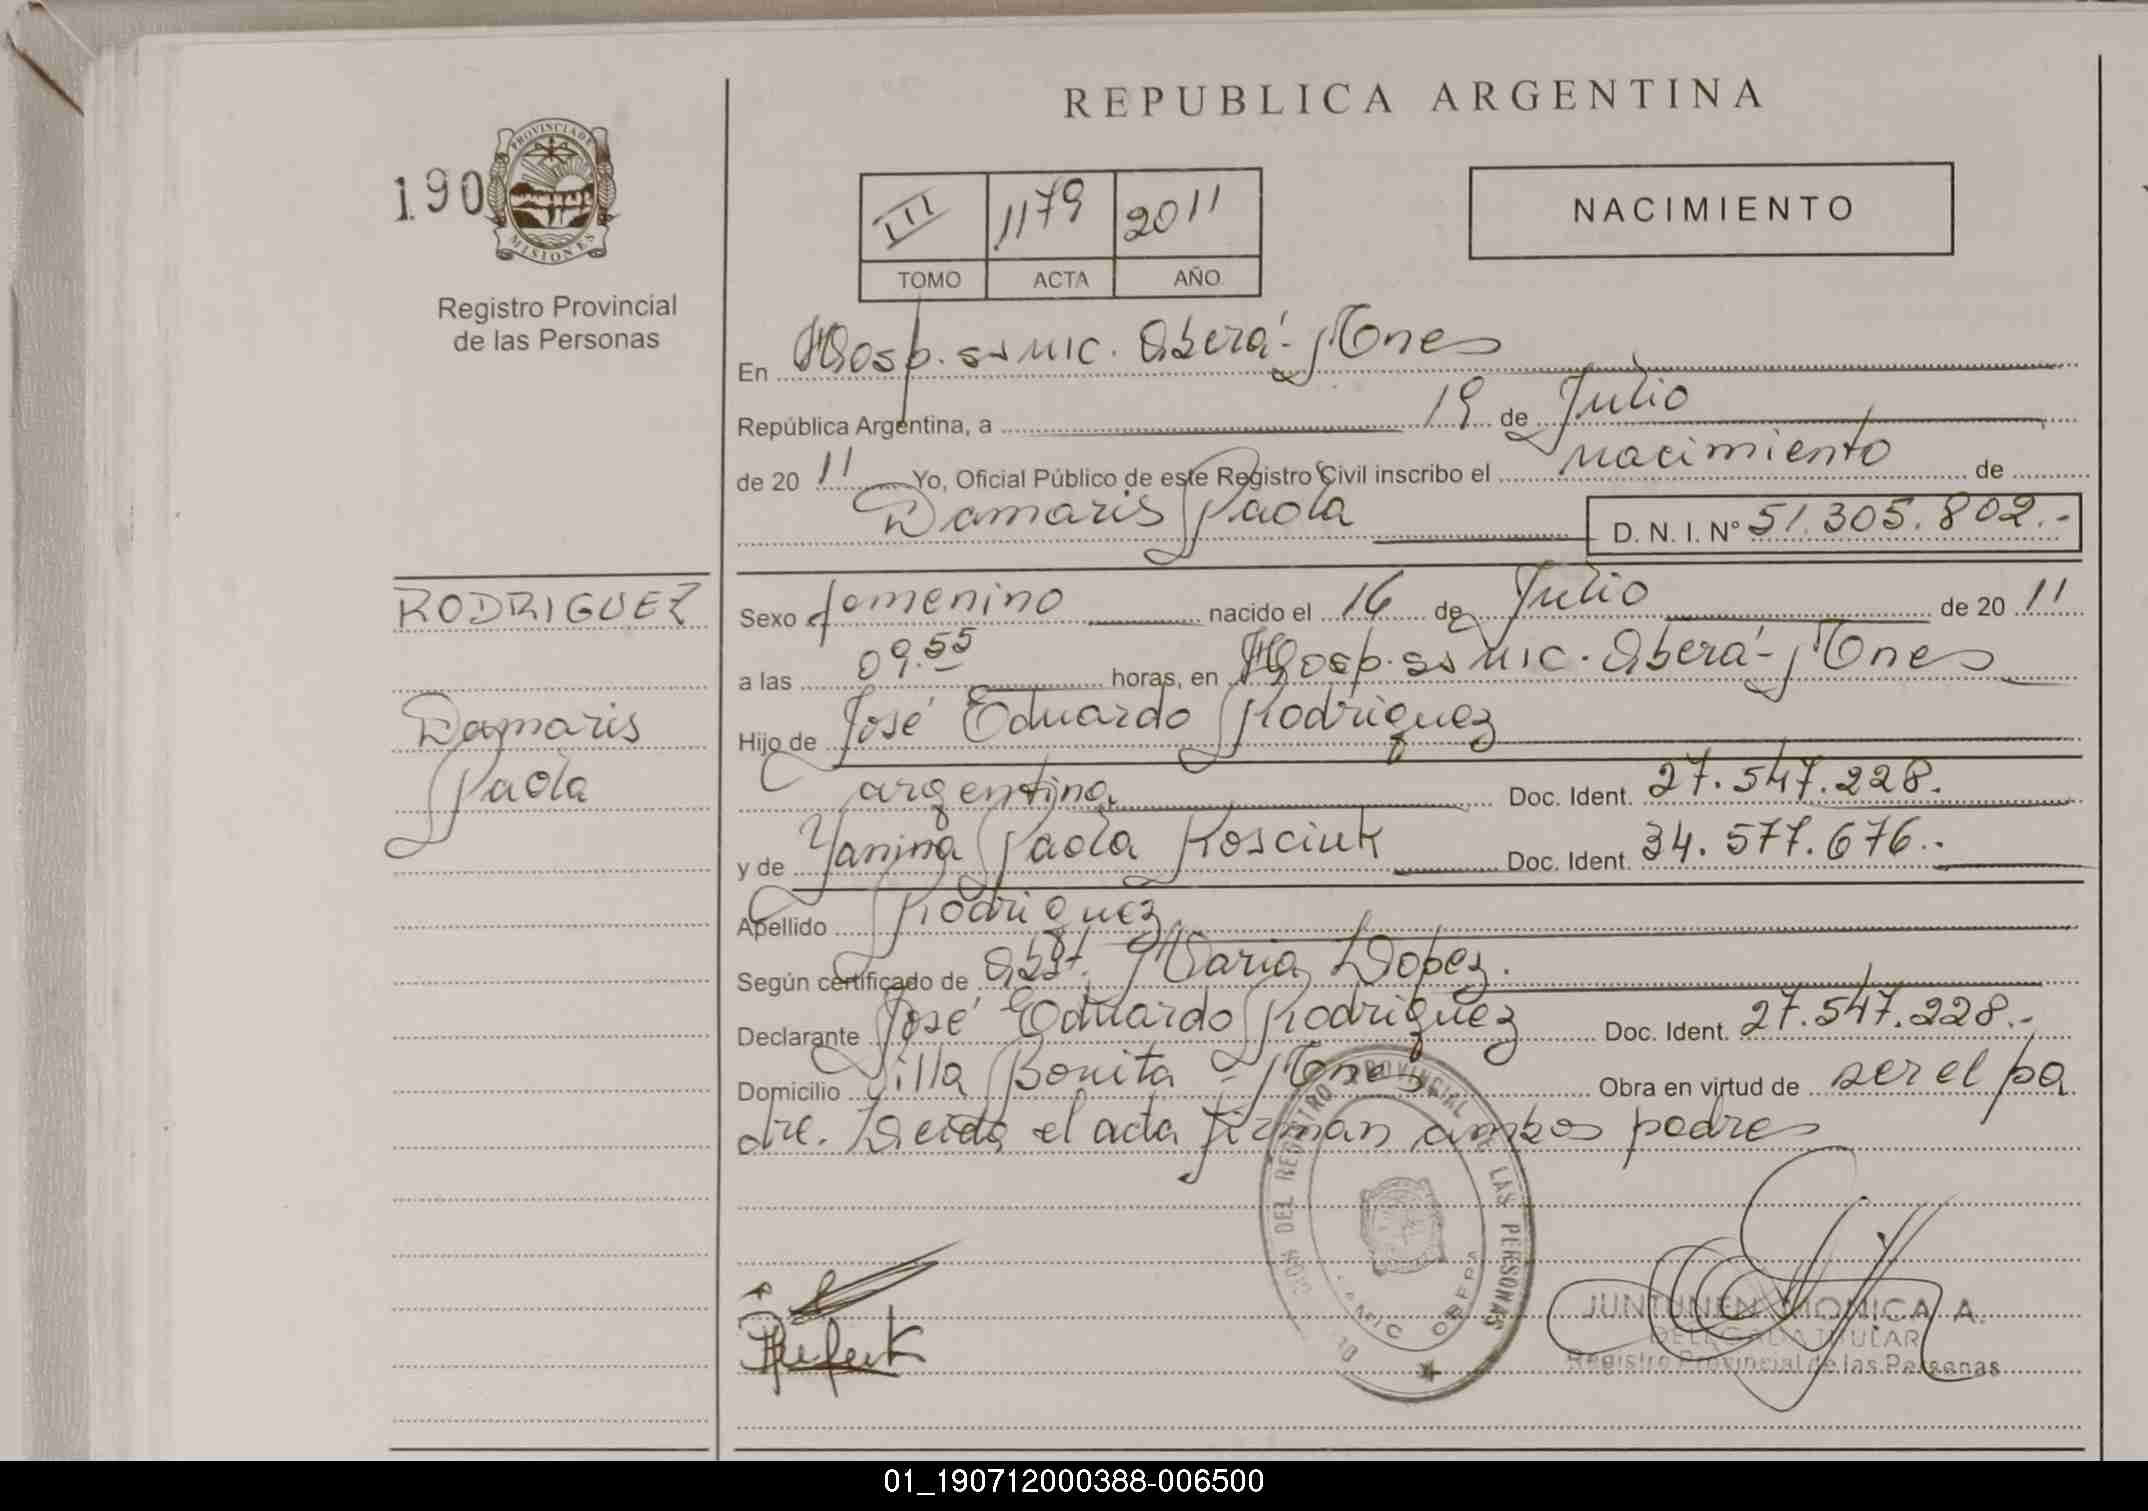 REPUBLICA ARGENTINA
190
PROVINCIA DE
MISIONES
Registro Provincial
de las Personas
III 1179 2011
TOMO ACTA AÑO
NACIMIENTO
En Hosp. ss Mic. Oberá - Mnes
República Argentina, a 19 de Julio
de 20 11 Yo, Oficial Público de este Registro Civil inscribo el nacimiento de
Damaris Paola D. N. I. Nº 51.305.802.-
RODRIGUEZ
Damaris
Paola
Sexo femenino nacido el 16 de Julio de 20 11
a las 09.55 horas, en Hosp. ss Mic. Oberá - Mnes
Hijo de José Eduardo Rodriguez
argentina Doc. Ident. 27.547.228.
y de Yanina Paola Kosciuk Doc. Ident. 34.577.676.-
Apellido Rodriguez
Según certificado de Obst. Maria Lopez.
Declarante José Eduardo Rodriguez Doc. Ident. 27.547.228.-
Domicilio Villa Bonita - Mnes Obra en virtud de ser el pa
dre. Leida el acta firman ambos padres
DEL REGISTRO PROVINCIAL DE LAS PERSONAS
JUNTUNEN MONICA A.
DELEGADA TITULAR
Registro Provincial de las Personas
01_190712000388-006500